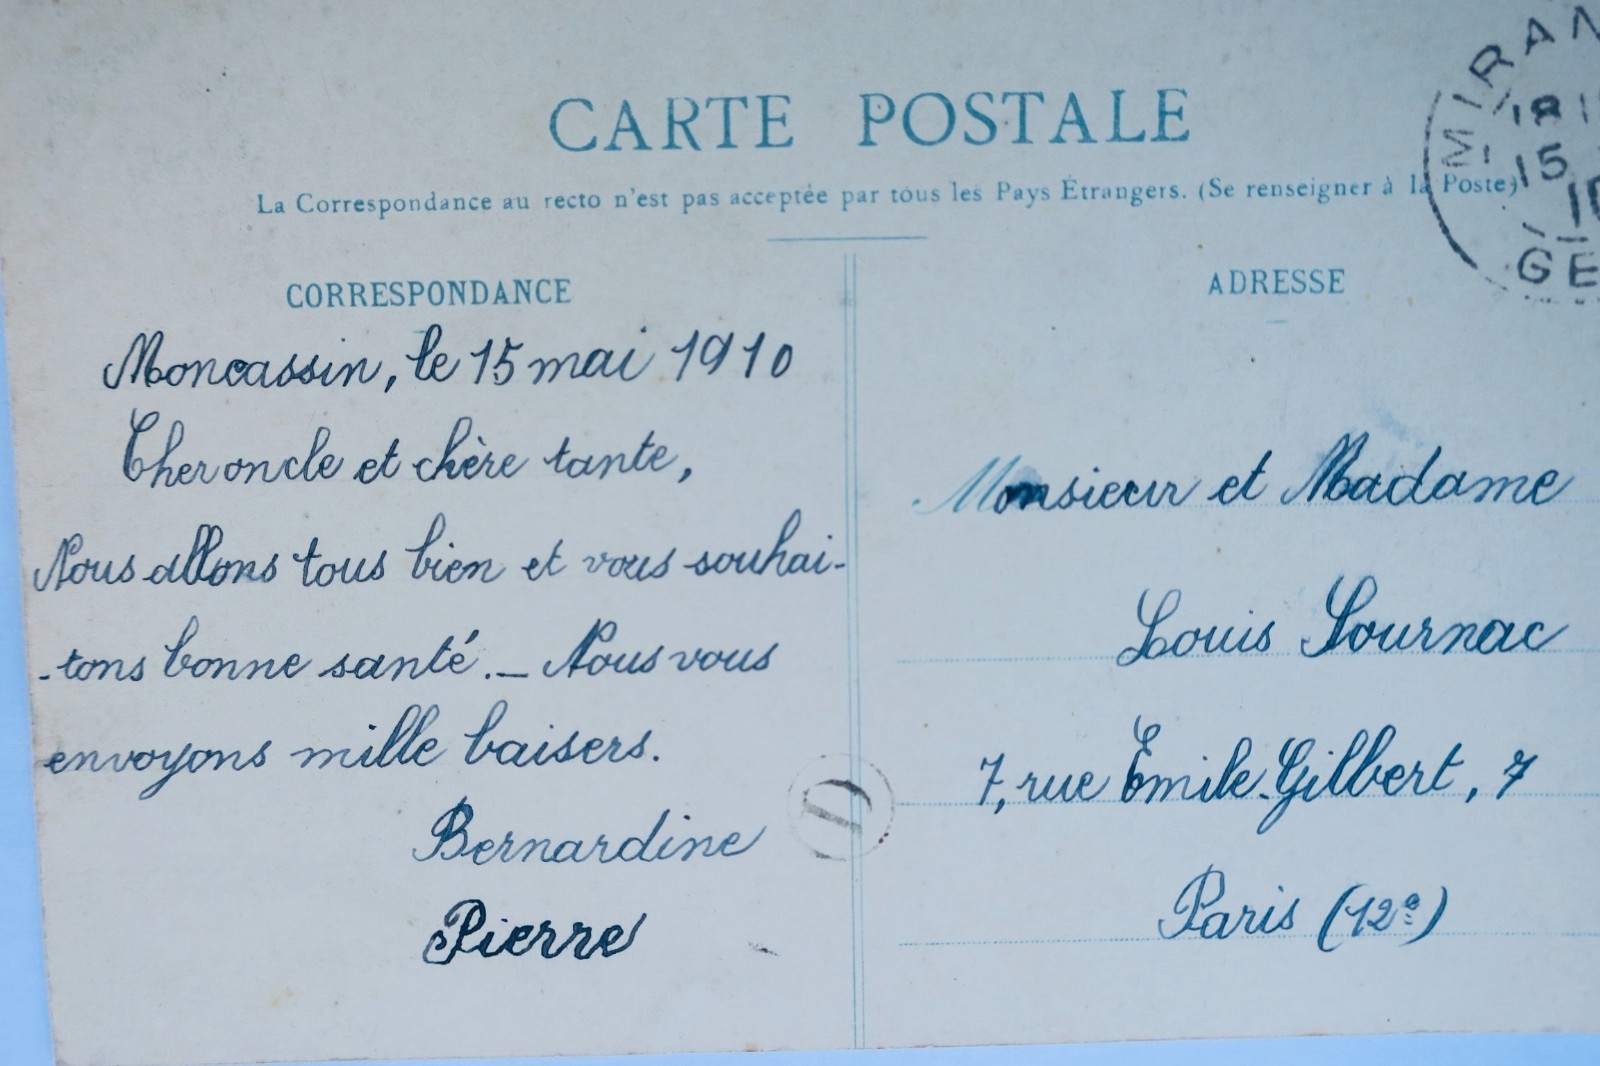 CARTE POSTALE
La Correspondance au recto n'est pas acceptée par tous les Pays Étrangers. (Se renseigner à la Poste)
CORRESPONDANCE
Moncassin, le 15 mai 1910
Cher oncle et chère tante,
Nous allons tous bien et vous souhai-
-tons bonne santé._ Nous vous
envoyons mille baisers.
Bernardine
Pierre
D
ADRESSE
Monsieur et Madame
Louis Sournac
7, rue Emile-Gilbert, 7
Paris (12e)
MIRAN
15
10
GE